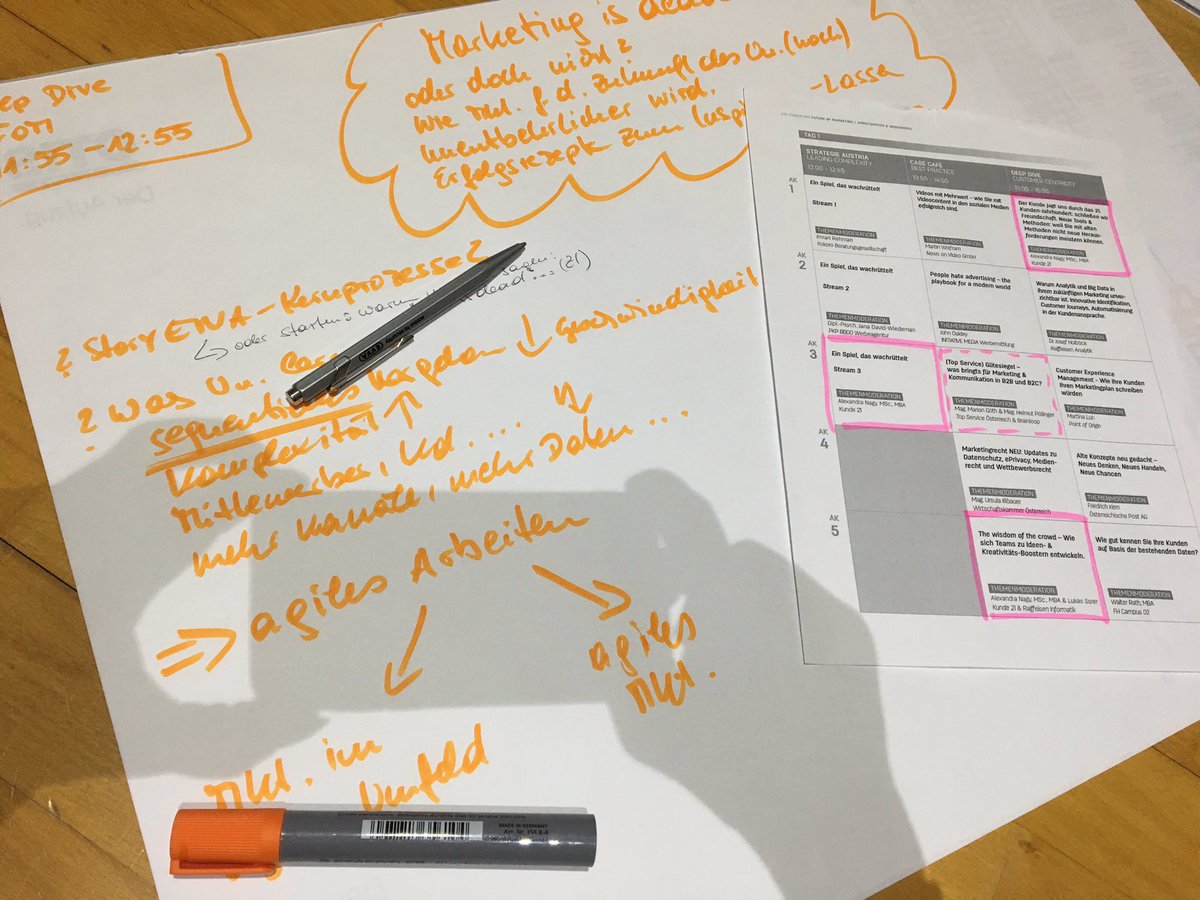 Deep Dive
FOM
11:55 – 12:55
Marketing is dead
oder doch nicht?
Wie Mkt. f. d. Zukunft des Un. (noch)
unentbehrlicher wird.
Erfolgsrezepte zum
-Lassen
? Story ETNA-Kernprozesse?
sagen:
↳ oder starten: warum dead... (21)
? Was Un.
sequentielles Vorgehen ↓ Geschwindigkeit
Komplexität ↑
Mitbewerber, Kd....
mehr Kanäle, mehr Daten...
⇒ agiles Arbeiten
agiles
Mkt.
Mkt. im
Umfeld
MADE IN GERMANY
Der Aufzug
FUTURE OF MARKETING / ARBEITSKREISE & WORKSHOPS
TAG 1
STRATEGIE AUSTRIA
LEADING COMPLEXITY
12:00 - 12:45
CASE CAFÉ
BEST PRACTICE
13:55 - 14:55
DEEP DIVE
CUSTOMER CENTRICITY
AK
1
Ein Spiel, das wachrüttelt
Stream 1
THEMENMODERATION
Imran Rehman
Kokoro Beratungsgesellschaft
Videos mit Mehrwert - wie Sie mit
Videocontent in den sozialen Medien
erfolgreich sind.
THEMENMODERATION
Martin Wolfram
News on Video GmbH
Der Kunde jagt uns durch das 21.
Kunden-Jahrhundert: schließen wir
Freundschaft. Neue Tools &
Methoden; weil Sie mit alten
Methoden nicht neue Heraus-
forderungen meistern können.
THEMENMODERATION
Alexandra Nagy, MSc, MBA
Kunde 21
AK
2
Ein Spiel, das wachrüttelt
Stream 2
THEMENMODERATION
Dipl.-Psych. Jana David-Wiedeman
PKP BBDO Werbeagentur
People hate advertising - the
playbook for a modern world
THEMENMODERATION
John Oakley
INITIATIVE MEDIA Werbemittlung
Warum Analytik und Big Data in
Ihrem zukünftigen Marketing unver-
zichtbar ist. Innovative Identifikation,
Customer Journeys, Automatisierung
in der Kundenansprache.
THEMENMODERATION
DI Josef Holböck
Raiffeisen Analytik
AK
3
Ein Spiel, das wachrüttelt
Stream 3
THEMENMODERATION
Alexandra Nagy, MSc, MBA
Kunde 21
(Top Service) Gütesiegel –
was bringts für Marketing &
Kommunikation in B2B und B2C?
THEMENMODERATION
Mag. Marion Göth & Mag. Helmut Pöllinger
Top Service Österreich & Brainloop
Customer Experience
Management - Wie Ihre Kunden
Ihren Marketingplan schreiben
würden
THEMENMODERATION
Martina Luh
Point of Origin
AK
4
Marketingrecht NEU: Updates zu
Datenschutz, ePrivacy, Medien-
recht und Wettbewerbsrecht
THEMENMODERATION
Mag. Ursula Illibauer
Wirtschaftskammer Österreich
Alte Konzepte neu gedacht –
Neues Denken, Neues Handeln,
Neue Chancen
THEMENMODERATION
Friedrich Kern
Österreichische Post AG
AK
5
The wisdom of the crowd - Wie
sich Teams zu Ideen- &
Kreativitäts-Boostern entwickeln.
THEMENMODERATION
Alexandra Nagy, MSc, MBA & Lukas Sozer
Kunde 21 & Raiffeisen Informatik
Wie gut kennen Sie Ihre Kunden
auf Basis der bestehenden Daten?
THEMENMODERATION
Walter Rath, MBA
FH Campus 02